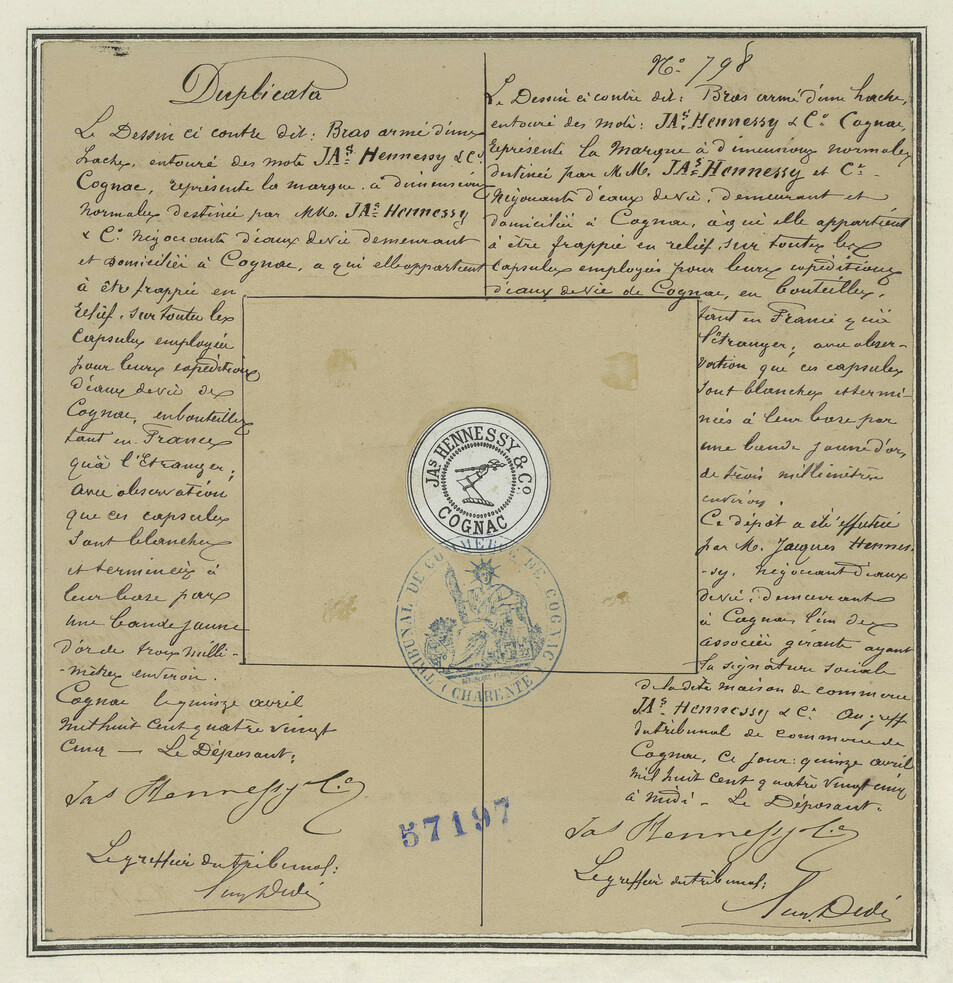 Duplicata
Le Dessin ci contre dit: Bras armé d'une
hache, entouré des mots JAS Hennessy & Co.
Cognac, représente la marque à dimensions
normales destinée par MM. JAS Hennessy
& Co. Négociants d'eaux de vie demeurant
et domiciliés à Cognac, a qui elle appartient
à être frappée en
relief, sur toutes les
Capsules employées
pour leurs expéditions
d'eaux de vie de
Cognac, en bouteilles
tant en France
qu'à l'Etranger;
avec observation
que ces capsules
sont blanches
et terminées à
leur base par
une bande jaune
d'or de trois milli-
-mètres environ.
Cognac le quinze avril
mil huit cent quatre vingt
cinq — Le Déposant:
Jas Hennessy & Co
Le greffier du tribunal:
No 798
Le Dessin ci contre dit: Bras armé d'une hache,
entouré des mots: JAS. Hennessy & Co Cognac,
représente la Marque à dimensions normales
destinée par M.M. JAS Hennessy et Co.
Négociants d'eaux de vie, demeurant et
domiciliés à Cognac, à qui elle appartient
à être frappée en relief, sur toutes les
Capsules employées pour leurs expéditions
d'eaux de vie de Cognac, en bouteilles,
tant en France qu'à
l'étranger; avec obser-
vation que ces capsules
sont blanches et termi-
nées à leur base par
une bande jaune d'or,
de trois millimètres
environ.
Ce dépôt a été effectué
par M. Jacques Hennes-
-sy, négociant d'eaux
de vie, demeurant
à Cognac l'un des
associés gérants ayant
la signature sociale
de la dite maison de commerce
JAS. Hennessy & Co. Au greffe
du tribunal de commerce de
Cognac, ce jour: quinze avril
mil huit cent quatre vingt cinq
à midi - Le Déposant.
Jas Hennessy & Co
Le greffier du tribunal:
JAS HENNESSY & CO.
COGNAC
TRIBUNAL DE COMMERCE DE COGNAC
(CHARENTE)
57197